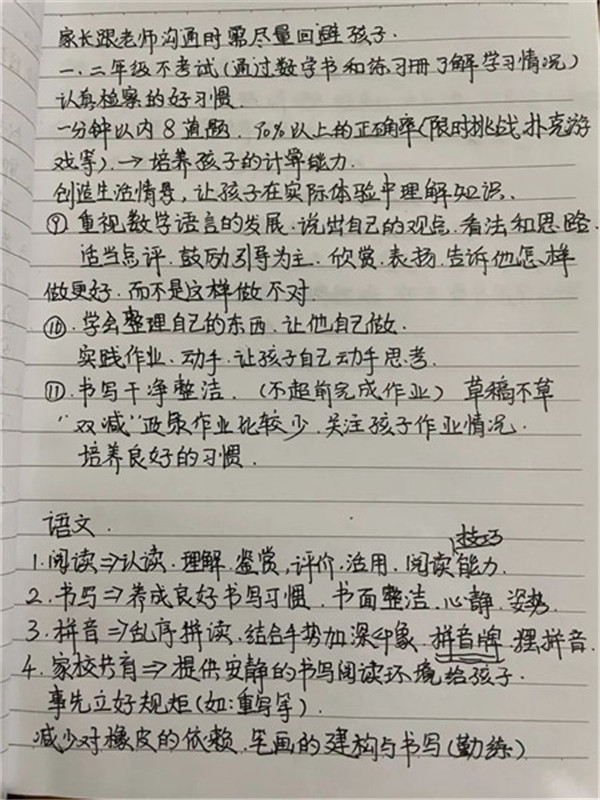 家长跟老师沟通时需尽量回避孩子.
一.二年级不考试(通过数字书和练习册了解学习情况)
认真检察的好习惯.
一分钟以内8道题.70%以上的正确率(限时挑战.扑克游
戏等).→培养孩子的计算能力.
创造生活情景,让孩子在实际体验中理解知识.
⑨重视数学语言的发展.说出自己的观点.看法和思路.
适当点评.鼓励引导为主.欣赏.表扬.告诉他怎样
做更好.而不是这样做不对.
⑩.学会整理自己的东西.让他自己做.
实践作业.动手.让孩子自己动手思考.
⑪.书写干净整洁.(不超前完成作业)草稿不草
"双减"政策作业比较少.关注孩子作业情况.
培养良好的习惯.
语文.
技巧
1.阅读⇒认读.理解.鉴赏,评价.活用.阅读能力.
2.书写⇒养成良好书写习惯.书面整洁.心静.姿势.
3.拼音⇒乱序拼读.结合手势加深印象.拼音牌.摆拼音.
4.家校共育⇒提供安静的书写阅读环境给孩子.
事先立好规矩(如:重写等).
减少对橡皮的依赖.笔画的建构与书写(勤练)